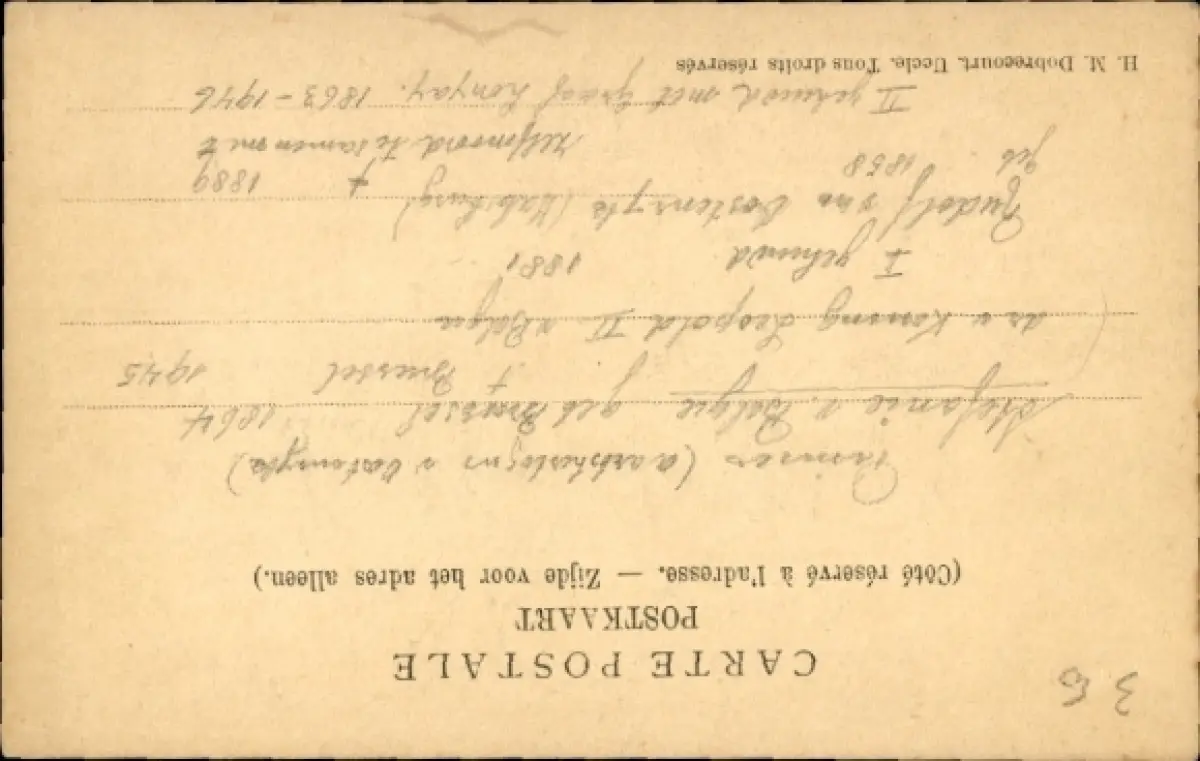 3 E
CARTE POSTALE
POSTKAART
(Côté réservé à l'adresse. — Zijde voor het adres alleen.)
Prinses (aartshertogin v Oostenryk)
Stefanie v. Belgie geb Brussel 1864
† Brussel 1945
dr v Koning Leopold II v Belgie
I gehuwd 1881
Rudolf van Oostenryk (Habsburg)
geb 1858 † 1889
zelfmoord te samen met
II gehuwd met graaf Lonyay. 1863-1946
H. M. Dobrecourt. Uccle. Tous droits réservés